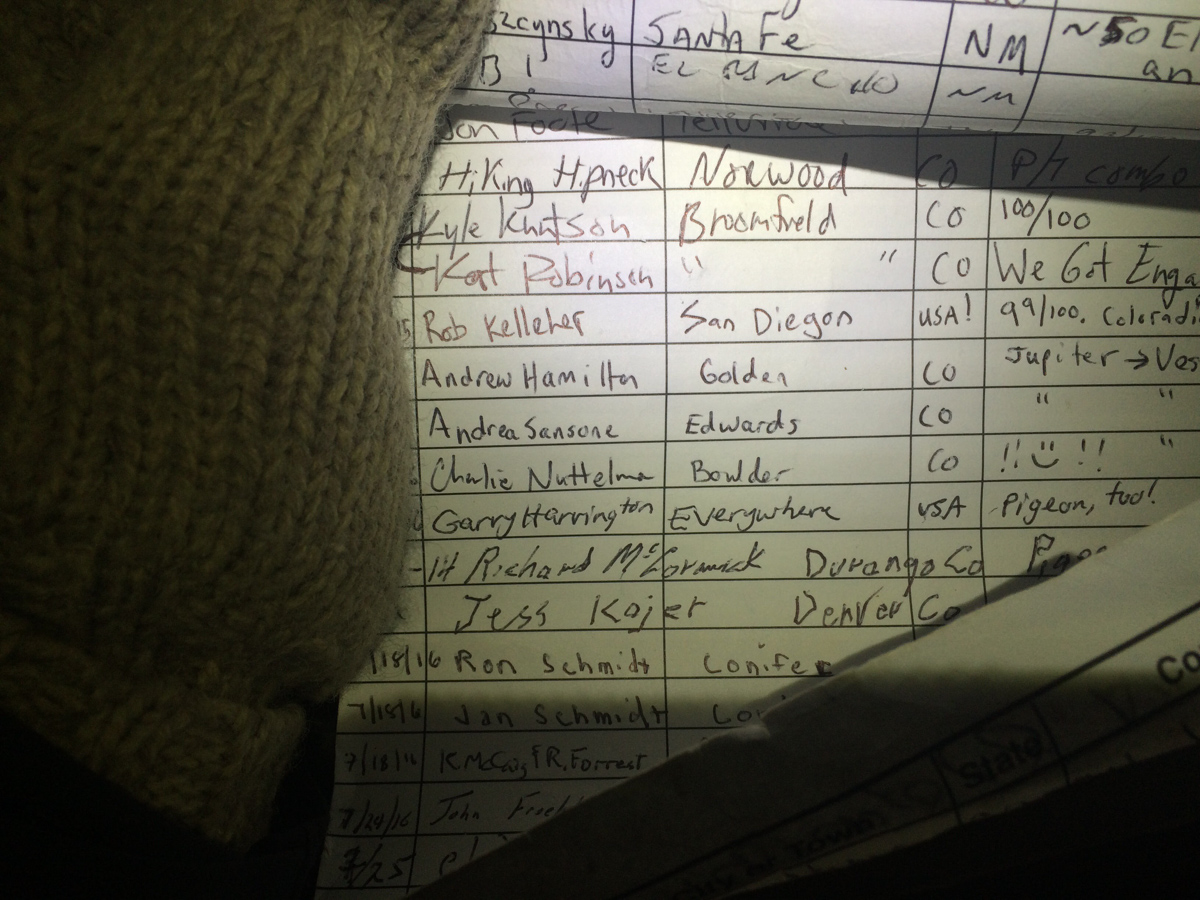 SANTA Fe NM ~50
NM
Jon Foote
Hiking Hipneck Norwood CO P/T combo
Kyle Knutson Broomfield CO 100/100
Kat Robinson " " CO We Got Enga
Rob Kelleher San Diegon USA! 99/100. Coloradi
Andrew Hamilton Golden CO Jupiter → Ves
Andrea Sansone Edwards CO " "
Charlie Nuttelma Boulder CO !! ☺ !! "
Garry Harrington Everywhere USA Pigeon, too!
Richard McCormick Durango Co
Jess Kojer Denver Co
7/18/16 Ron Schmidt Conifer
7/18/16 Jan Schmidt
7/18/16 R. Forrest
7/24/16 John
7/25
State